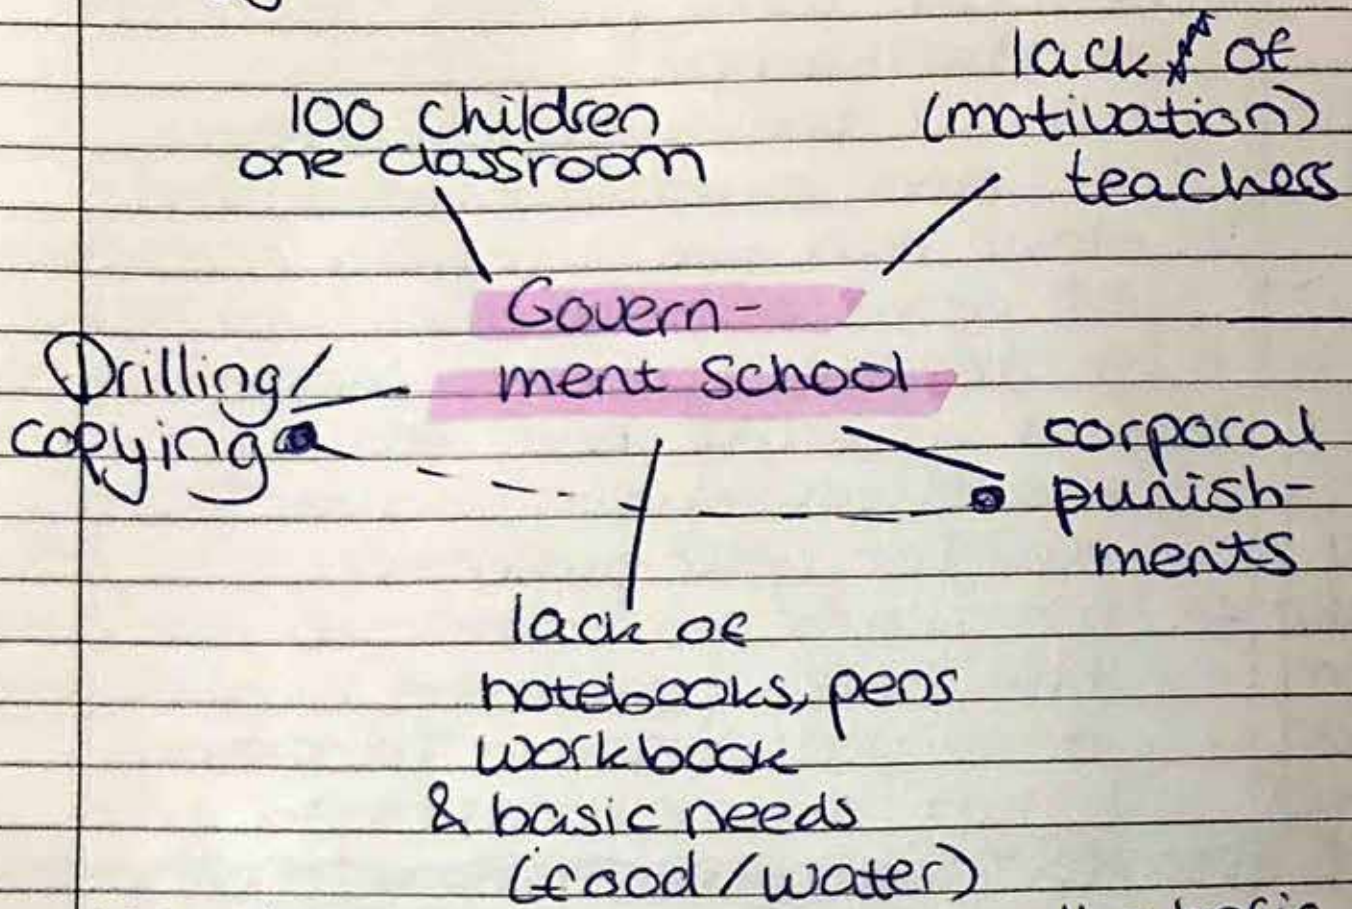 100 children
one classroom
lack of
(motivation)
teachers
Govern-
ment School
Drilling/
copying
corporal
punish-
ments
lack of
notebooks, pens
workbook
& basic needs
(food/water)